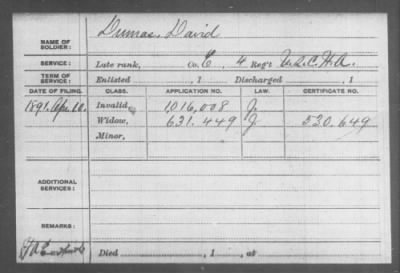 NAME OF SOLDIER: Dumas, David
SERVICE: Late rank, Co. E, 4 Reg't U.S.C.H.A.
TERM OF SERVICE: Enlisted , 1 Discharged , 1
DATE OF FILING. CLASS. APPLICATION NO. LAW. CERTIFICATE NO.
1891. Apr. 10. Invalid, 1,016,008 J.
Widow, 631.449 J 530.649
Minor,
ADDITIONAL SERVICES:
REMARKS:
Died , 1 , at